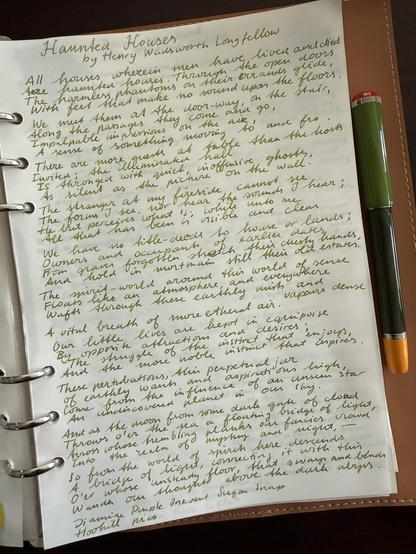 Haunted Houses
by Henry Wadsworth Longfellow
All houses wherein men have lived and died
Are haunted houses. Through the open doors
The harmless phantoms on their errands glide,
With feet that make no sound upon the floors.
We meet them at the door-way, on the stair,
Along the passages they come and go,
Impalpable impressions on the air,
A sense of something moving to and fro.
There are more guests at table than the hosts
Invited; the illuminated hall
Is thronged with quiet, inoffensive ghosts,
As silent as the pictures on the wall.
The stranger at my fireside cannot see
The forms I see, nor hear the sounds I hear;
He but perceives what is; while unto me
All that has been is visible and clear
We have no title-deeds to house or lands;
Owners and occupants of earlier dates
From graves forgotten stretch their dusty hands,
And hold in mortmain still their old estates.
The spirit-world around this world of sense
Floats like an atmosphere, and everywhere
Wafts through these earthly mists and vapours dense
A vital breath of more ethereal air.
Our little lives are kept in equipoise
By opposite attractions and desires;
The struggle of the instinct that enjoys,
And the more noble instinct that aspires.
These perturbations, this perpetual jar
Of earthly wants and aspirations high,
Come from the influence of an unseen star
An undiscovered planet in our sky.
And as the moon from some dark gate of cloud
Throws o'er the sea a floating bridge of light,
Across whose trembling planks our fancies crowd
Into the realm of mystery and night,—
So from the world of spirits there descends
A bridge of light, connecting it with this
O'er whose unsteady floor, that sways and bends
Wander our thoughts above the dark abyss.
Diamine Purple Inkvent Sugar Snap